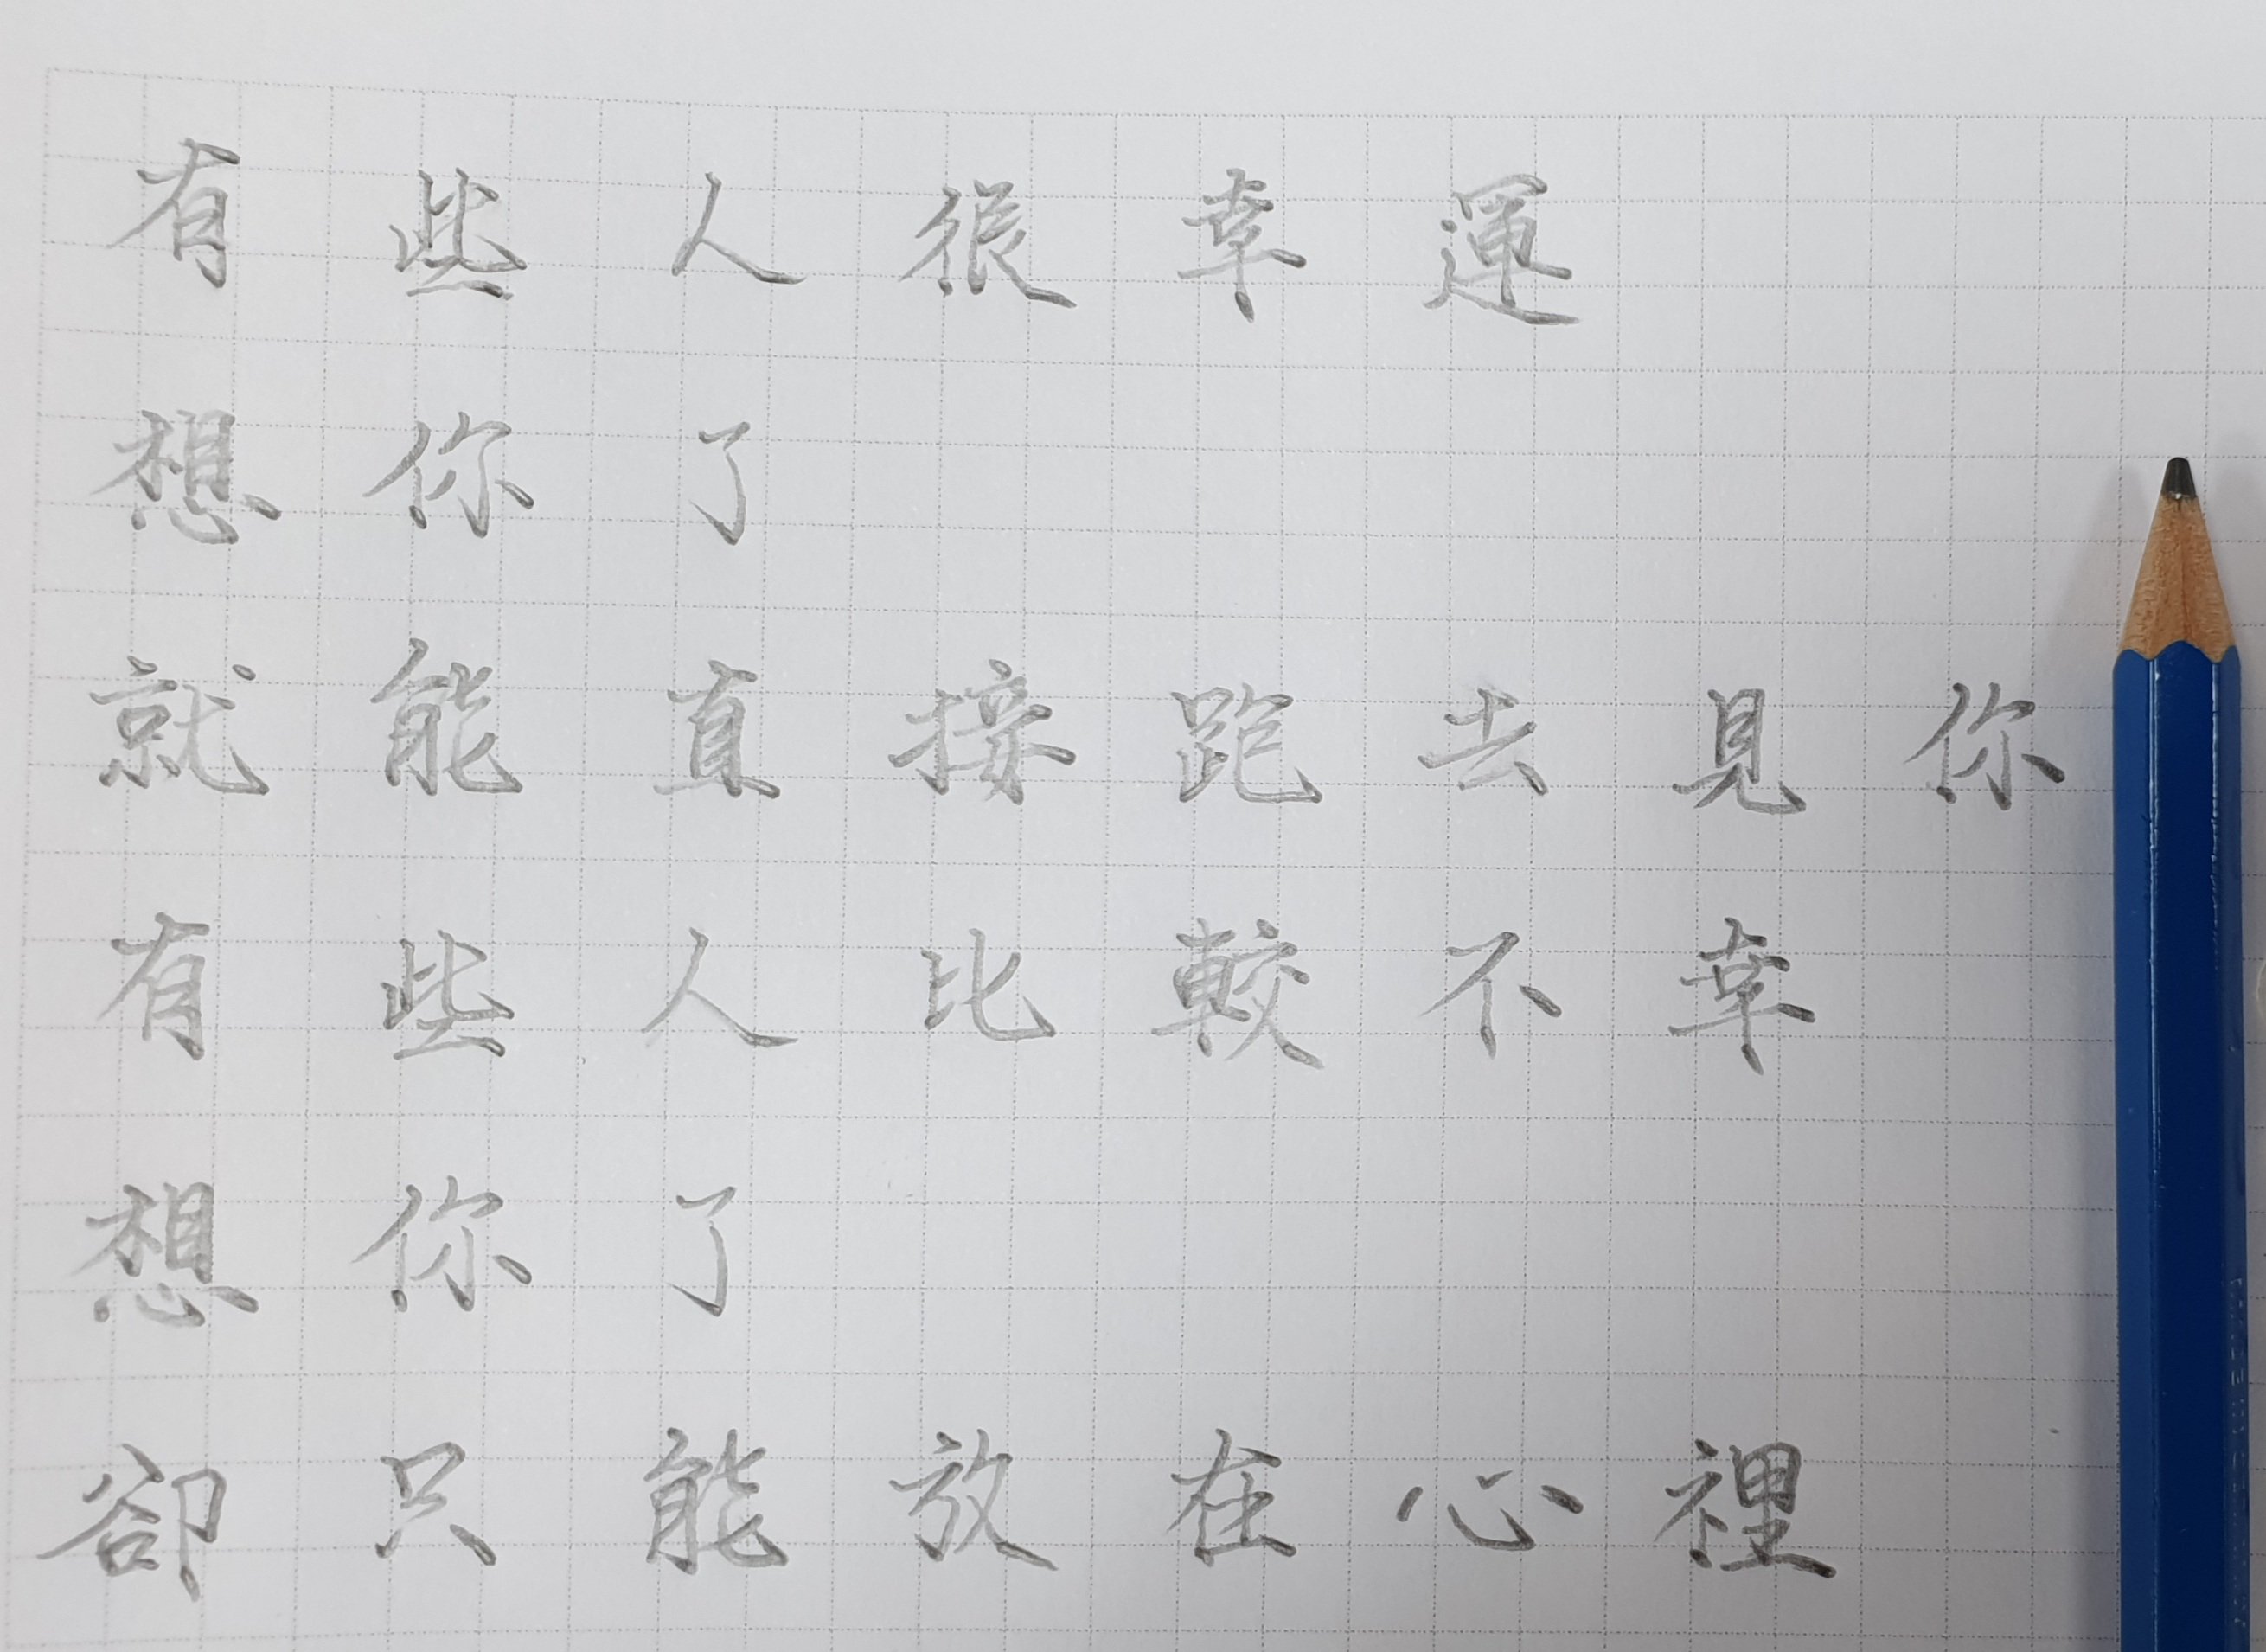 有些人很幸運
想你了
就能直接跑去見你
有些人比較不幸
想你了
卻只能放在心裡